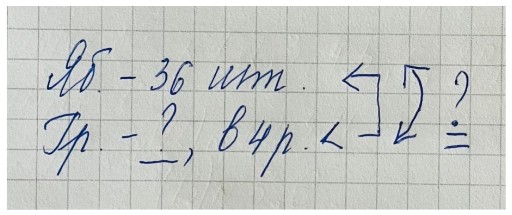 Яб. - 36 шт.
Гр. - ?, в 4 р. < ?